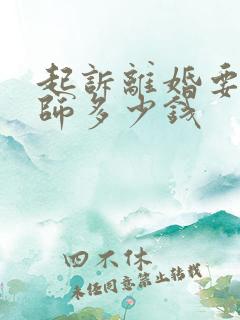 起訴離婚要
師多少錢
四不休
未經同意禁止轉載